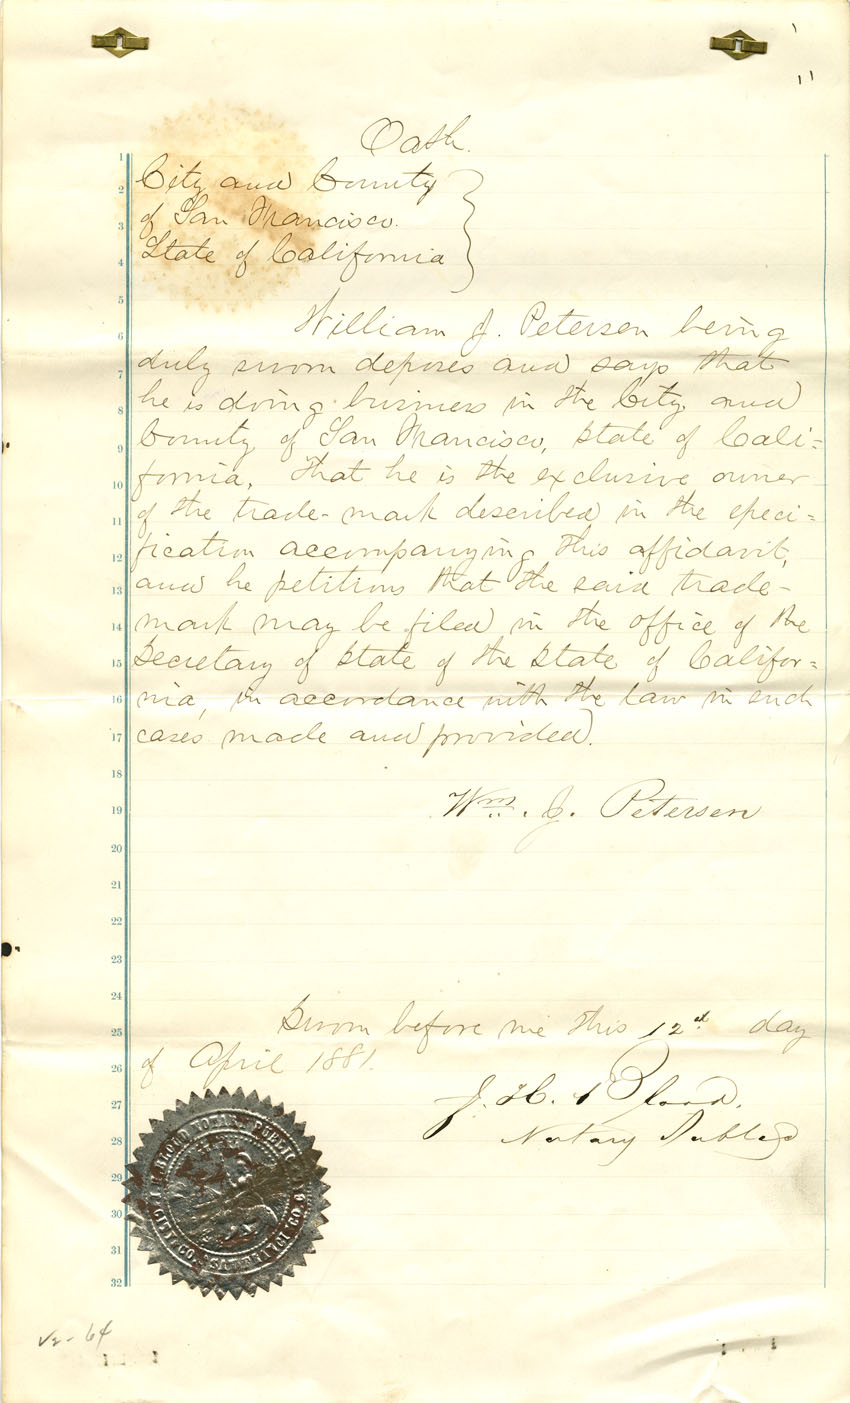 Oath.
City and County
of San Francisco.
State of California
William J. Petersen being
duly sworn deposes and says that
he is doing business in the City and
County of San Francisco, State of Cali=
fornia. That he is the exclusive owner
of the trade-mark described in the speci=
fication accompanying this affidavit,
and he petitions that the said trade-
mark may be filed in the office of the
Secretary of State of the State of Califor=
nia, in accordance with the law in such
cases made and provided.
Wm. J. Petersen
Sworn before me this 12th day
of April 1881.
J. H. Blood.
Notary Public
J. H. BLOOD NOTARY PUBLIC
CITY & CO. SAN FRANCISCO
1
2
3
4
5
6
7
8
9
10
11
12
13
14
15
16
17
18
19
20
21
22
23
24
25
26
27
28
29
30
31
32